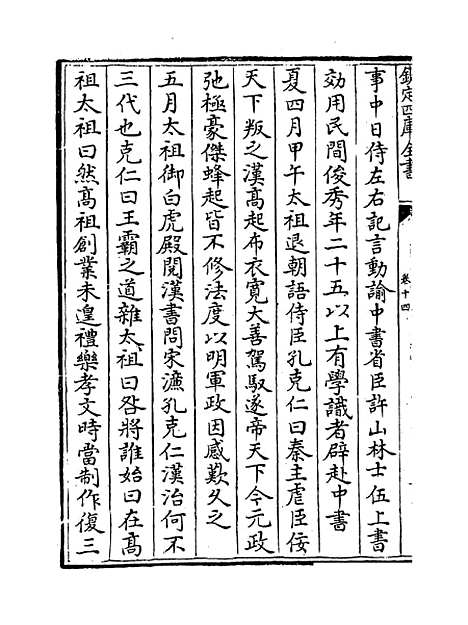 欽定四庫全書
卷十四
事中日侍左右記言動諭中書省臣許山林士伍上書
効用民間俊秀年二十五以上有學識者辟赴中書
夏四月甲午太祖退朝語侍臣孔克仁曰秦主虐臣佞
天下叛之漢髙起布衣寛大善駕馭遂帝天下今元政
弛極豪傑蜂起皆不修法度以明軍政因感歎久之
五月太祖御白虎殿閱漢書問宋濂孔克仁漢治何不
三代也克仁曰王霸之道雜太祖曰咎將誰始曰在髙
祖太祖曰然髙祖創業未遑禮樂孝文時當制作復三